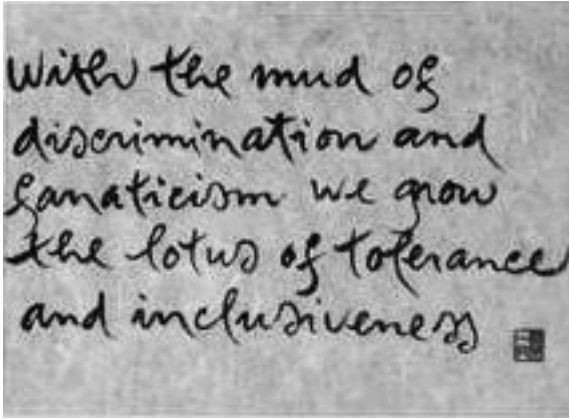 With the mud of
discrimination and
fanaticism we grow
the lotus of tolerance
and inclusiveness